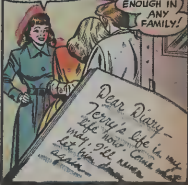 ENOUGH IN
ANY
FAMILY!
Dear Diary—
Terry's life in my
life now. Come what
may, I'll never
let him down
again.